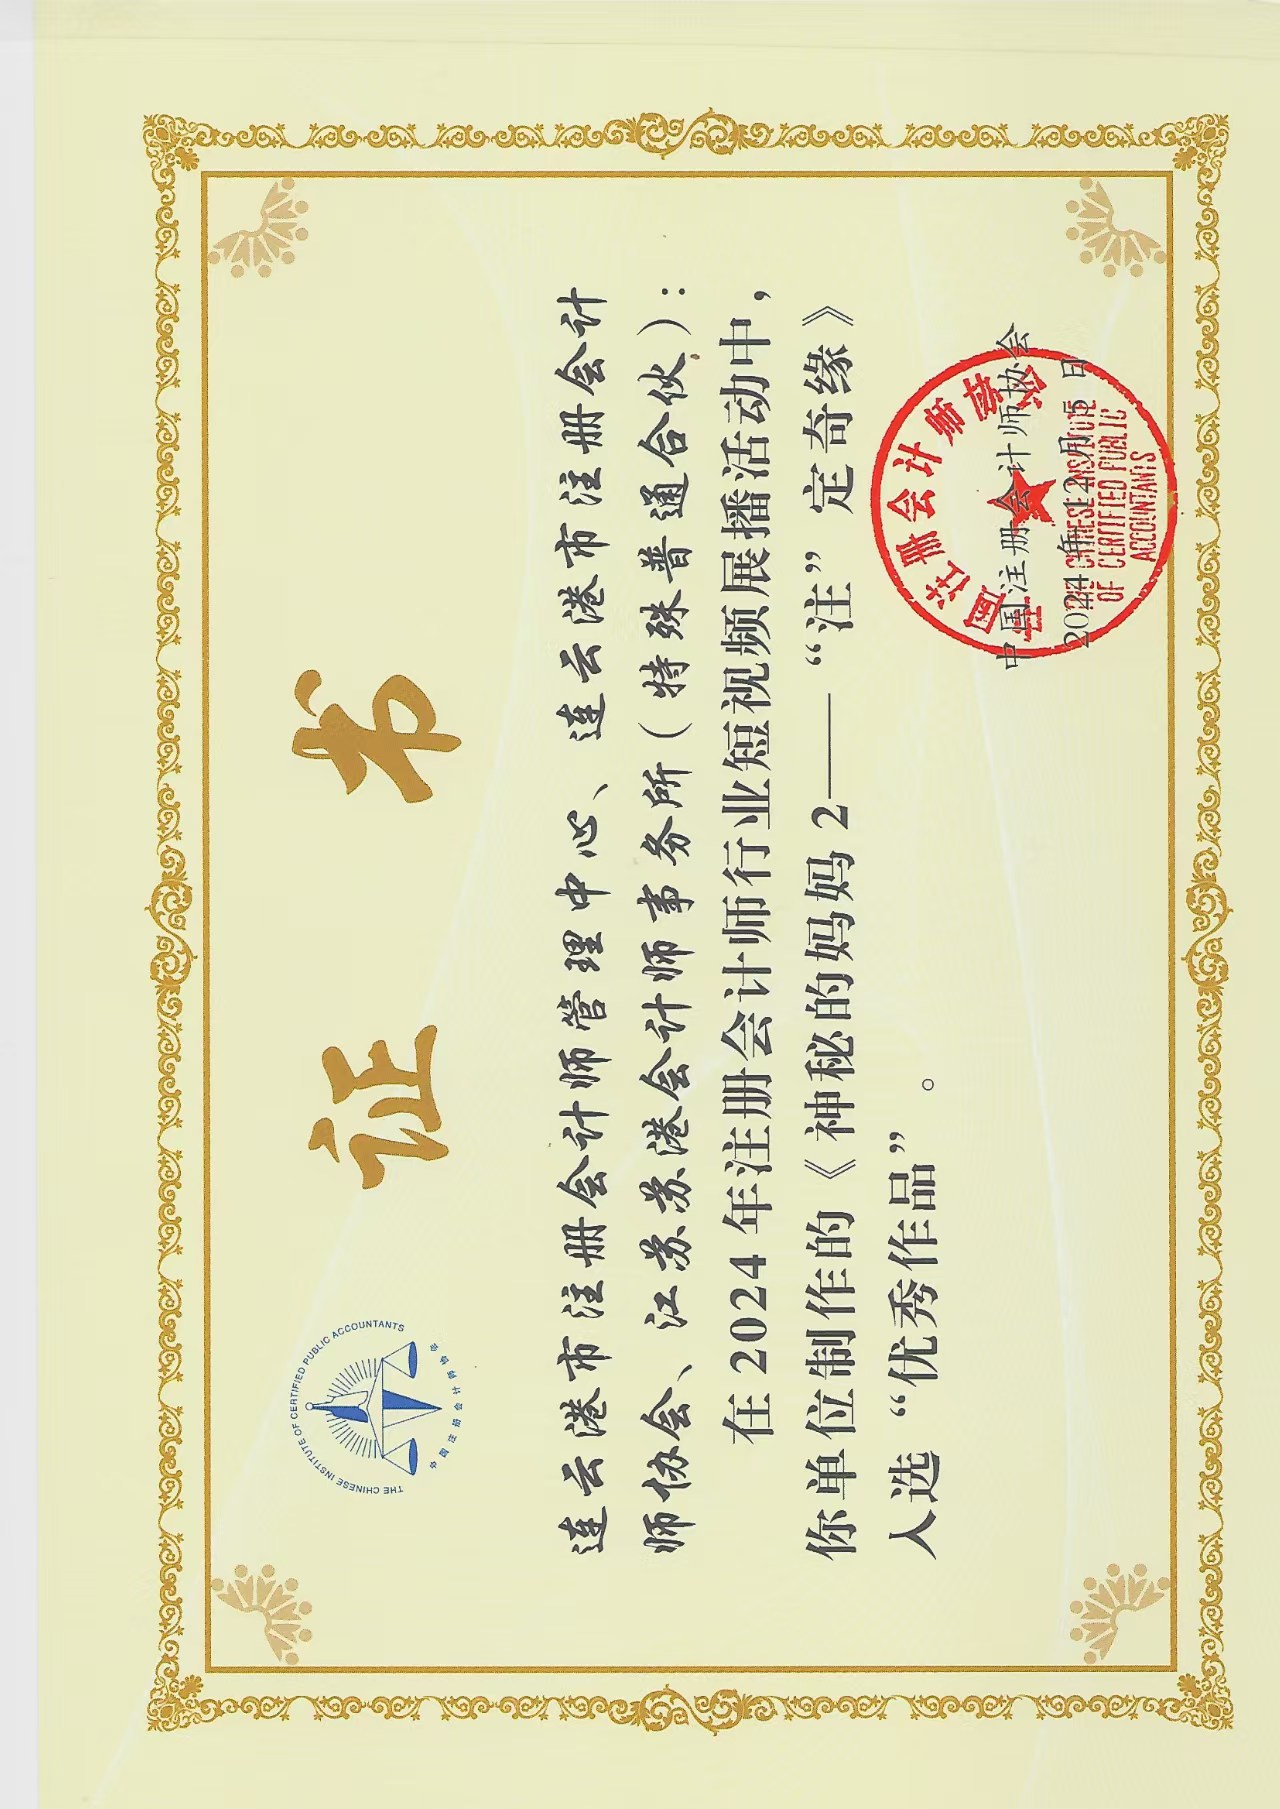 THE CHINESE INSTITUTE OF CERTIFIED PUBLIC ACCOUNTANTS
中国注册会计师协会
证书
连云港市注册会计师管理中心、连云港市注册会计
师协会、江苏苏港会计师事务所（特殊普通合伙）：
在2024年注册会计师行业短视频展播活动中，
你单位制作的《神秘的妈妈2——“注”定奇缘》
入选“优秀作品”。
中国注册会计师协会
2024年12月5日
中国注册会计师协会
THE CHINESE INSTITUTE
OF CERTIFIED PUBLIC
ACCOUNTANTS